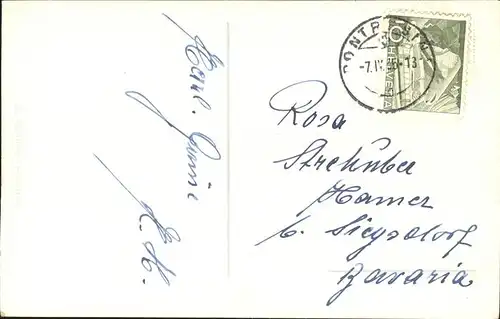 Herzl. Grüsse
R. H.
PONTRESINA
-7.IX.55-13
HELVETIA
Rosa
Strehuber
Hamer
b. Siegsdorf
Bavaria